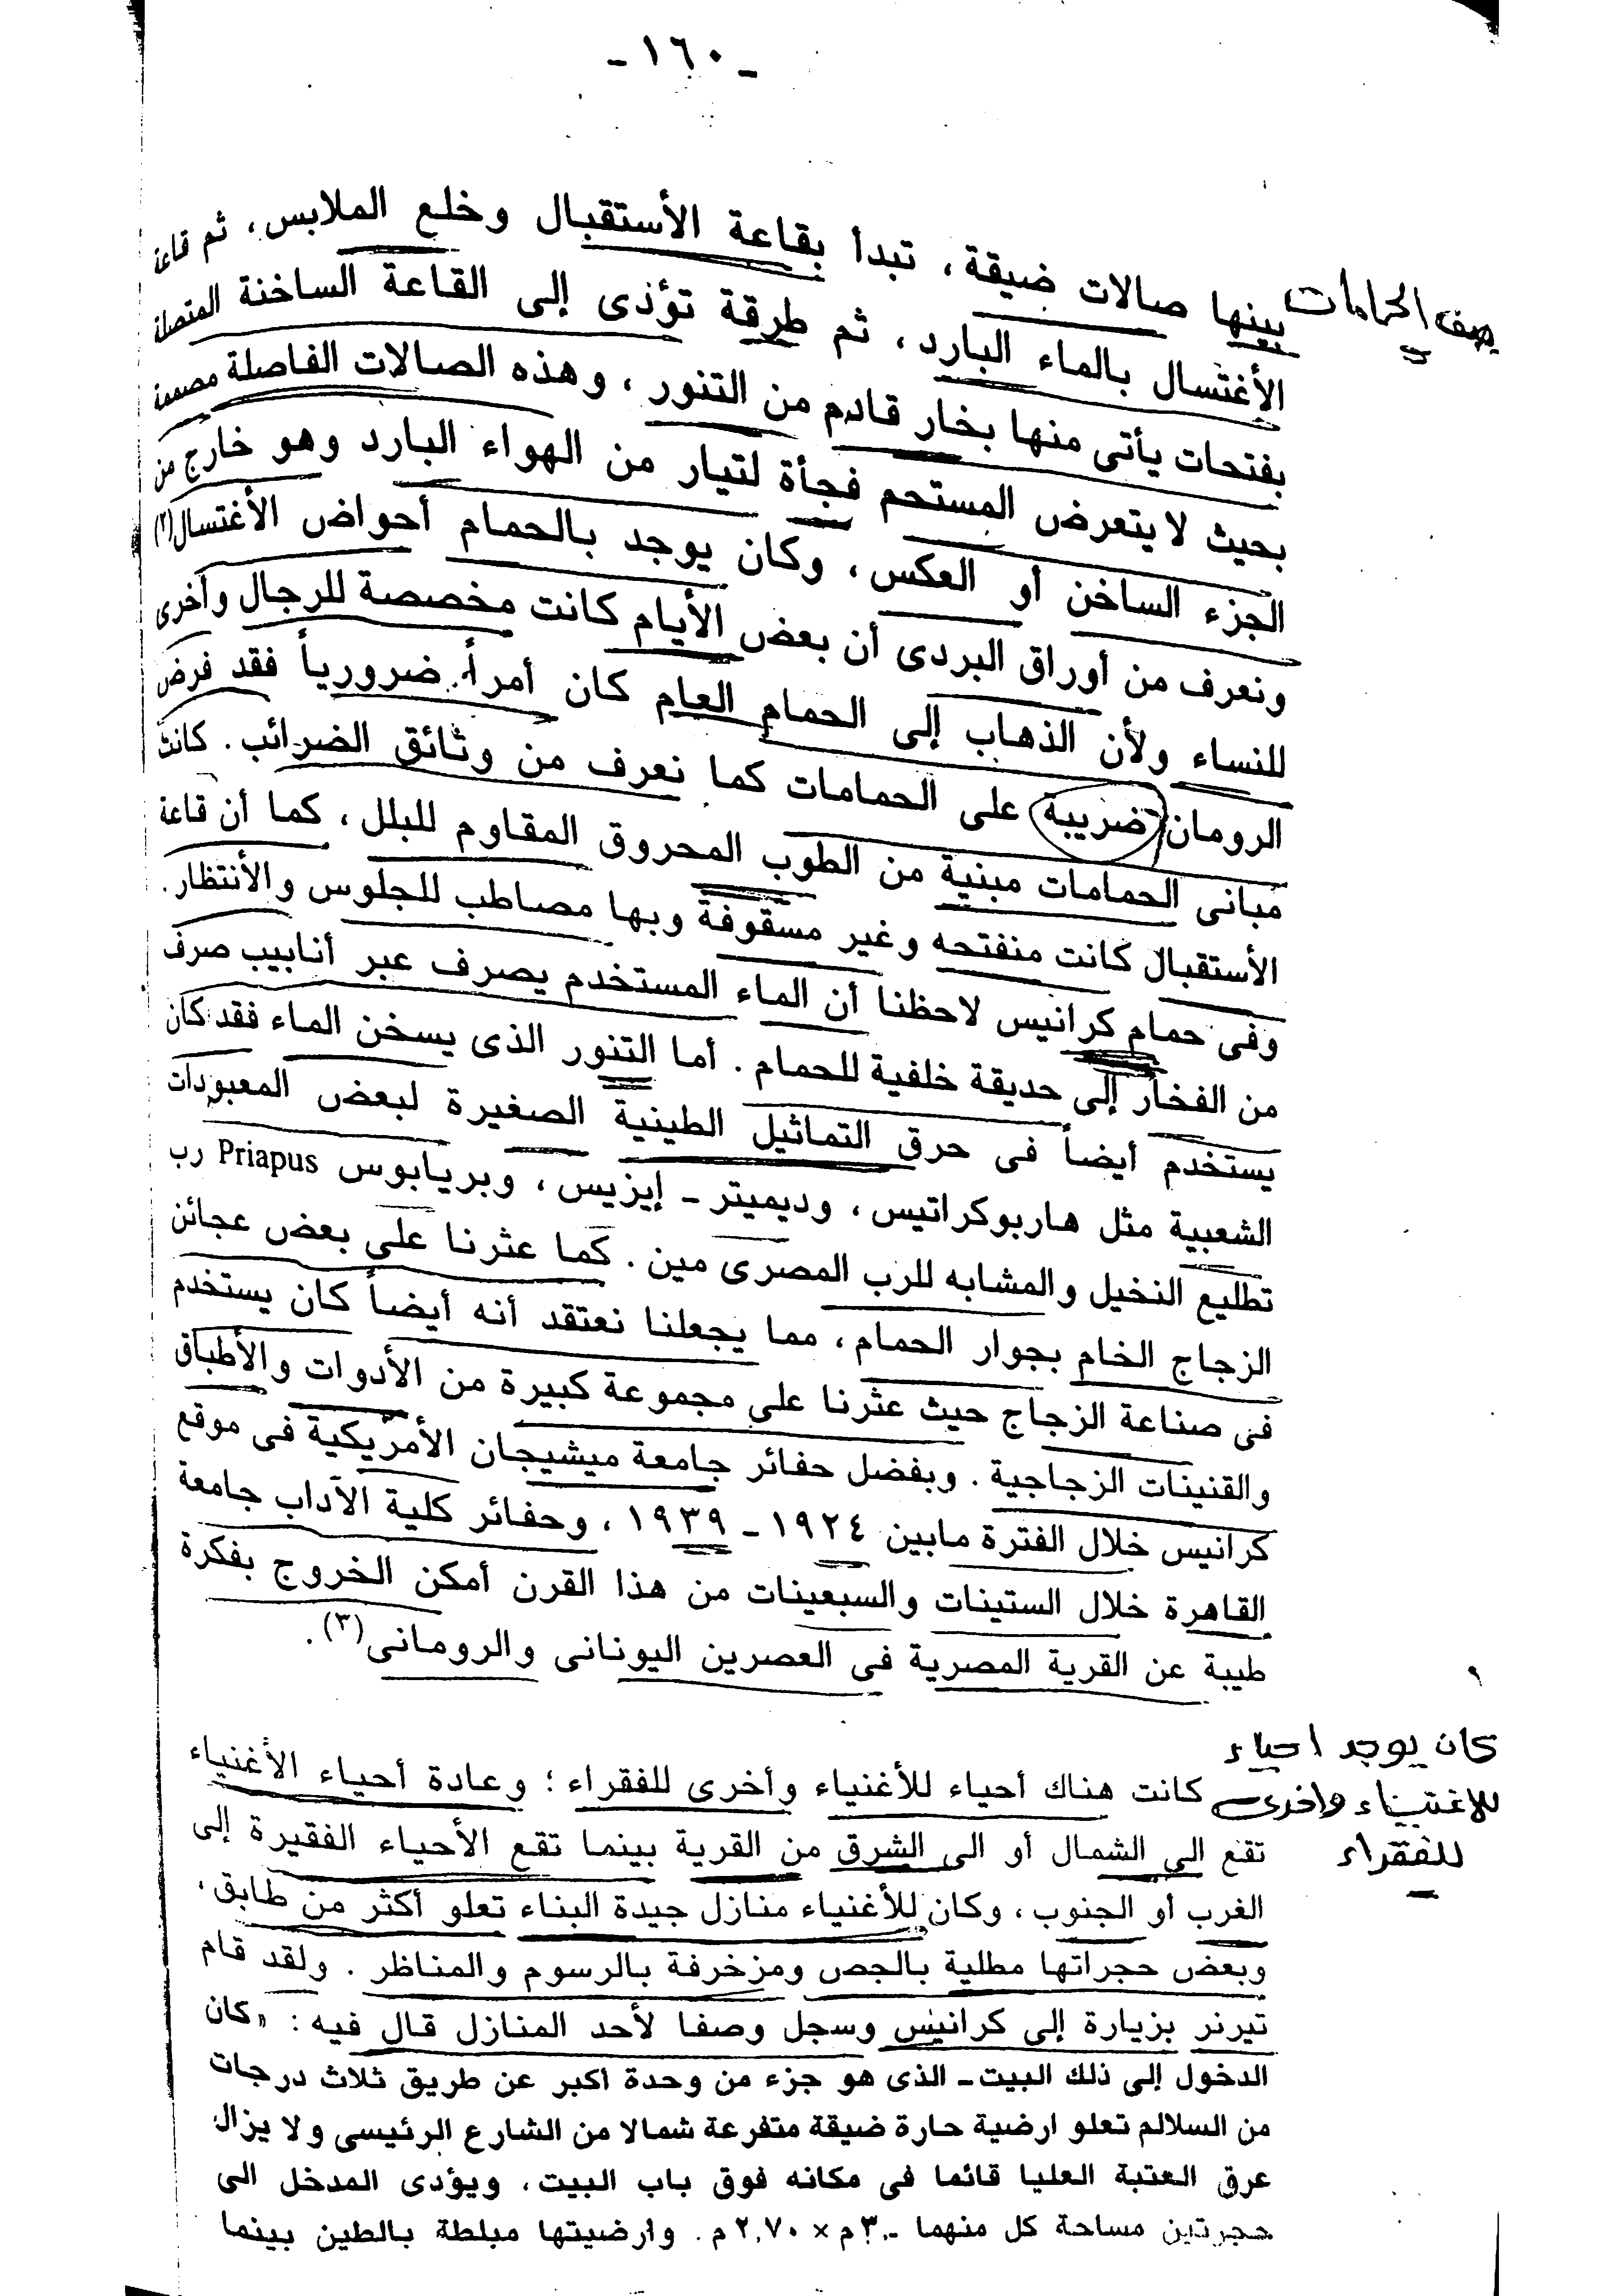 - ١٦٠ -
يصف الحمامات
بينها صالات ضيقة، تبدأ بقاعة الأستقبال وخلع الملابس، ثم قاعة
الأغتسال بالماء البارد، ثم طرقة تؤذى إلى القاعة الساخنة المتصلة
بفتحات يأتى منها بخار قادم من التنور، وهذه الصالات الفاصلة مصممة
بحيث لا يتعرض المستحم فجأة لتيار من الهواء البارد وهو خارج من
الجزء الساخن أو العكس، وكان يوجد بالحمام أحواض الأغتسال(٢)
ونعرف من أوراق البردى أن بعض الأيام كانت مخصصة للرجال وأخرى
للنساء ولأن الذهاب إلى الحمام العام كان أمراً ضرورياً فقد فرض
الرومان ضريبة على الحمامات كما نعرف من وثائق الضرائب. كانت
مبانى الحمامات مبنية من الطوب المحروق المقاوم للبلل، كما أن قاعة
الأستقبال كانت منفتحه وغير مسقوفة وبها مصاطب للجلوس والأنتظار.
وفى حمام كرانيس لاحظنا أن الماء المستخدم يصرف عبر أنابيب صرف
من الفخار إلى حديقة خلفية للحمام. أما التنور الذى يسخن الماء فقد كان
يستخدم أيضاً فى حرق التماثيل الطينية الصغيرة لبعض المعبودات
الشعبية مثل هاربوكراتيس، وديميتر - إيزيس، وبريابوس Priapus رب
تطليع النخيل والمشابه للرب المصرى مين. كما عثرنا على بعض عجائن
الزجاج الخام بجوار الحمام، مما يجعلنا نعتقد أنه أيضاً كان يستخدم
فى صناعة الزجاج حيث عثرنا على مجموعة كبيرة من الأدوات والأطباق
والقنينات الزجاجية. وبفضل حفائر جامعة ميشيجان الأمريكية فى موقع
كرانيس خلال الفترة مابين ١٩٢٤ - ١٩٣٩، وحفائر كلية الآداب جامعة
القاهرة خلال الستينات والسبعينات من هذا القرن أمكن الخروج بفكرة
طيبة عن القرية المصرية فى العصرين اليونانى والرومانى(٣).
كان يوجد احياء
للاغنياء واخرى
للفقراء
كانت هناك أحياء للأغنياء وأخرى للفقراء؛ وعادة أحياء الأغنياء
تقع الى الشمال أو الى الشرق من القرية بينما تقع الأحياء الفقيرة إلى
الغرب أو الجنوب، وكان للأغنياء منازل جيدة البناء تعلو أكثر من طابق،
وبعض حجراتها مطلية بالجص ومزخرفة بالرسوم والمناظر. ولقد قام
تيرنر بزيارة إلى كرانيس وسجل وصفا لأحد المنازل قال فيه: «كان
الدخول إلى ذلك البيت - الذى هو جزء من وحدة أكبر عن طريق ثلاث درجات
من السلالم تعلو ارضية حارة ضيقة متفرعة شمالا من الشارع الرئيسى ولا يزال
عرق العتبة العليا قائما فى مكانه فوق باب البيت، ويؤدى المدخل الى
حجرتين مساحة كل منهما ٣,٠٠م × ٢,٧٠م. وارضيتها مبلطة بالطين بينما